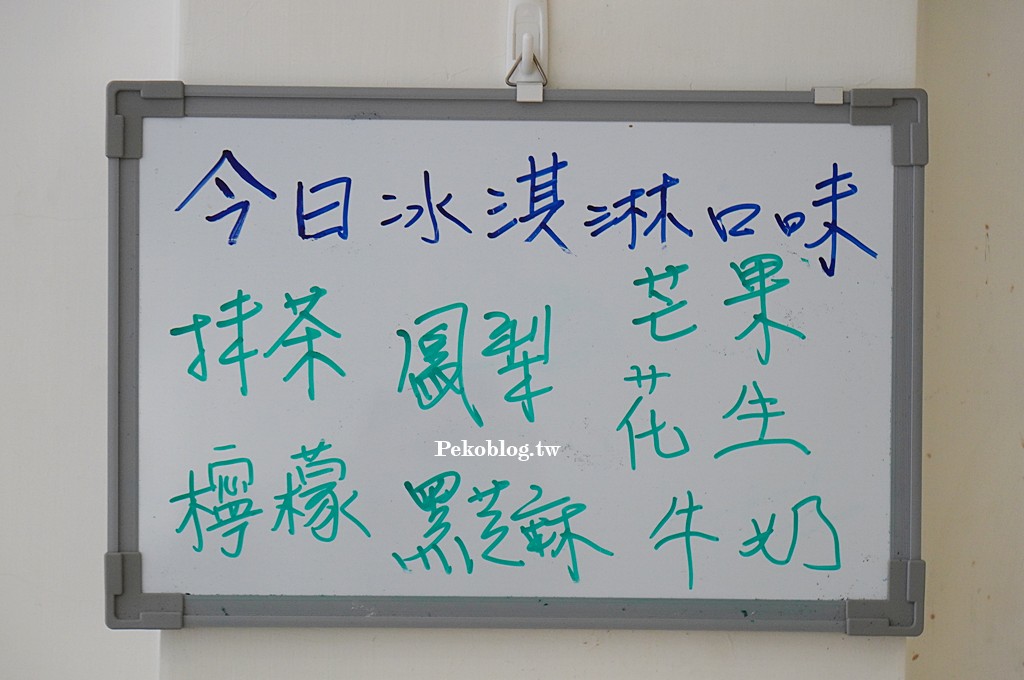 今日冰淇淋口味
抹茶 鳳梨 芒果
花生
檸檬 黑芝麻 牛奶
Pekoblog.tw